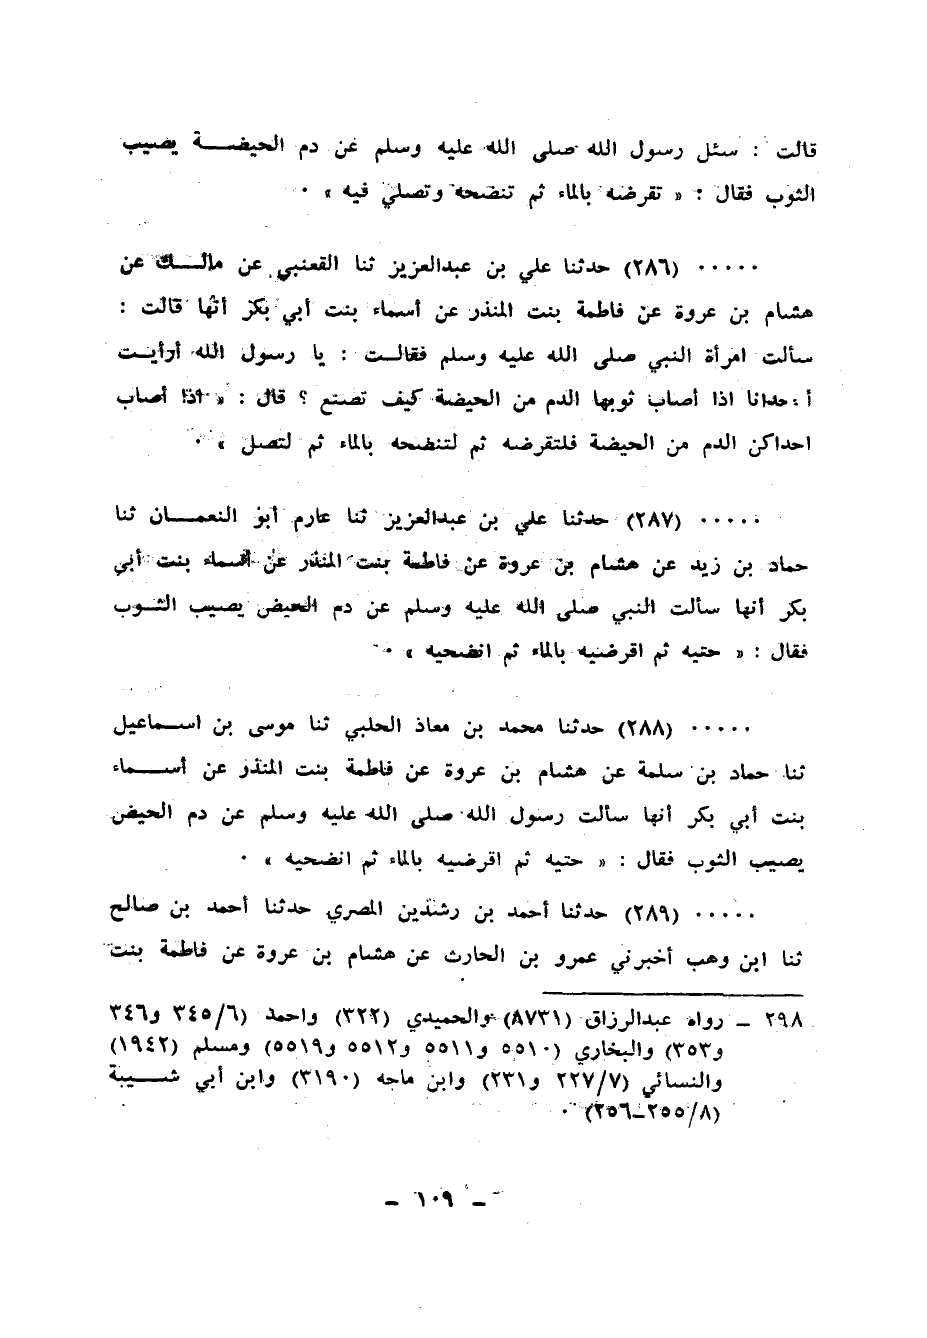 قالت : سئل رسول الله صلى الله عليه وسلم عن دم الحيضة يصيب
الثوب فقال : « تقرضه بالماء ثم تنضحه وتصلي فيه » ٠
٠٠٠٠٠ (٢٨٦) حدثنا علي بن عبدالعزيز ثنا القعنبي عن مالك عن
هشام بن عروة عن فاطمة بنت المنذر عن أسماء بنت أبي بكر أنها قالت :
سألت امرأة النبي صلى الله عليه وسلم فقالت : يا رسول الله أرأيت
أحدانا اذا أصاب ثوبها الدم من الحيضة كيف تصنع ؟ قال : « اذا أصاب
احداكن الدم من الحيضة فلتقرضه ثم لتنضحه بالماء ثم لتصل » ٠
٠٠٠٠٠ (٢٨٧) حدثنا علي بن عبدالعزيز ثنا عارم أبو النعمان ثنا
حماد بن زيد عن هشام بن عروة عن فاطمة بنت المنذر عن أسماء بنت أبي
بكر أنها سألت النبي صلى الله عليه وسلم عن دم الحيض يصيب الثوب
فقال : « حتيه ثم اقرضيه بالماء ثم انضحيه » ٠
٠٠٠٠٠ (٢٨٨) حدثنا محمد بن معاذ الحلبي ثنا موسى بن اسماعيل
ثنا حماد بن سلمة عن هشام بن عروة عن فاطمة بنت المنذر عن أسماء
بنت أبي بكر أنها سألت رسول الله صلى الله عليه وسلم عن دم الحيض
يصيب الثوب فقال : « حتيه ثم اقرضيه بالماء ثم انضحيه » ٠
٠٠٠٠٠ (٢٨٩) حدثنا أحمد بن رشدين المصري حدثنا أحمد بن صالح
ثنا ابن وهب أخبرني عمرو بن الحارث عن هشام بن عروة عن فاطمة بنت
٢٩٨ ـ رواه عبدالرزاق (٨٧٣١) والحميدي (٣٢٢) واحمد (٣٤٥/٦ و٣٤٦
و٣٥٣) والبخاري (٥٥١٠ و٥٥١١ و٥٥١٢ و٥٥١٩) ومسلم (١٩٤٢)
والنسائي (٢٢٧/٧ و٢٣١) وابن ماجه (٣١٩٠) وابن أبي شيبة
(٢٥٥/٨ـ٢٥٦) ٠
ـ ١٠٩ ـ